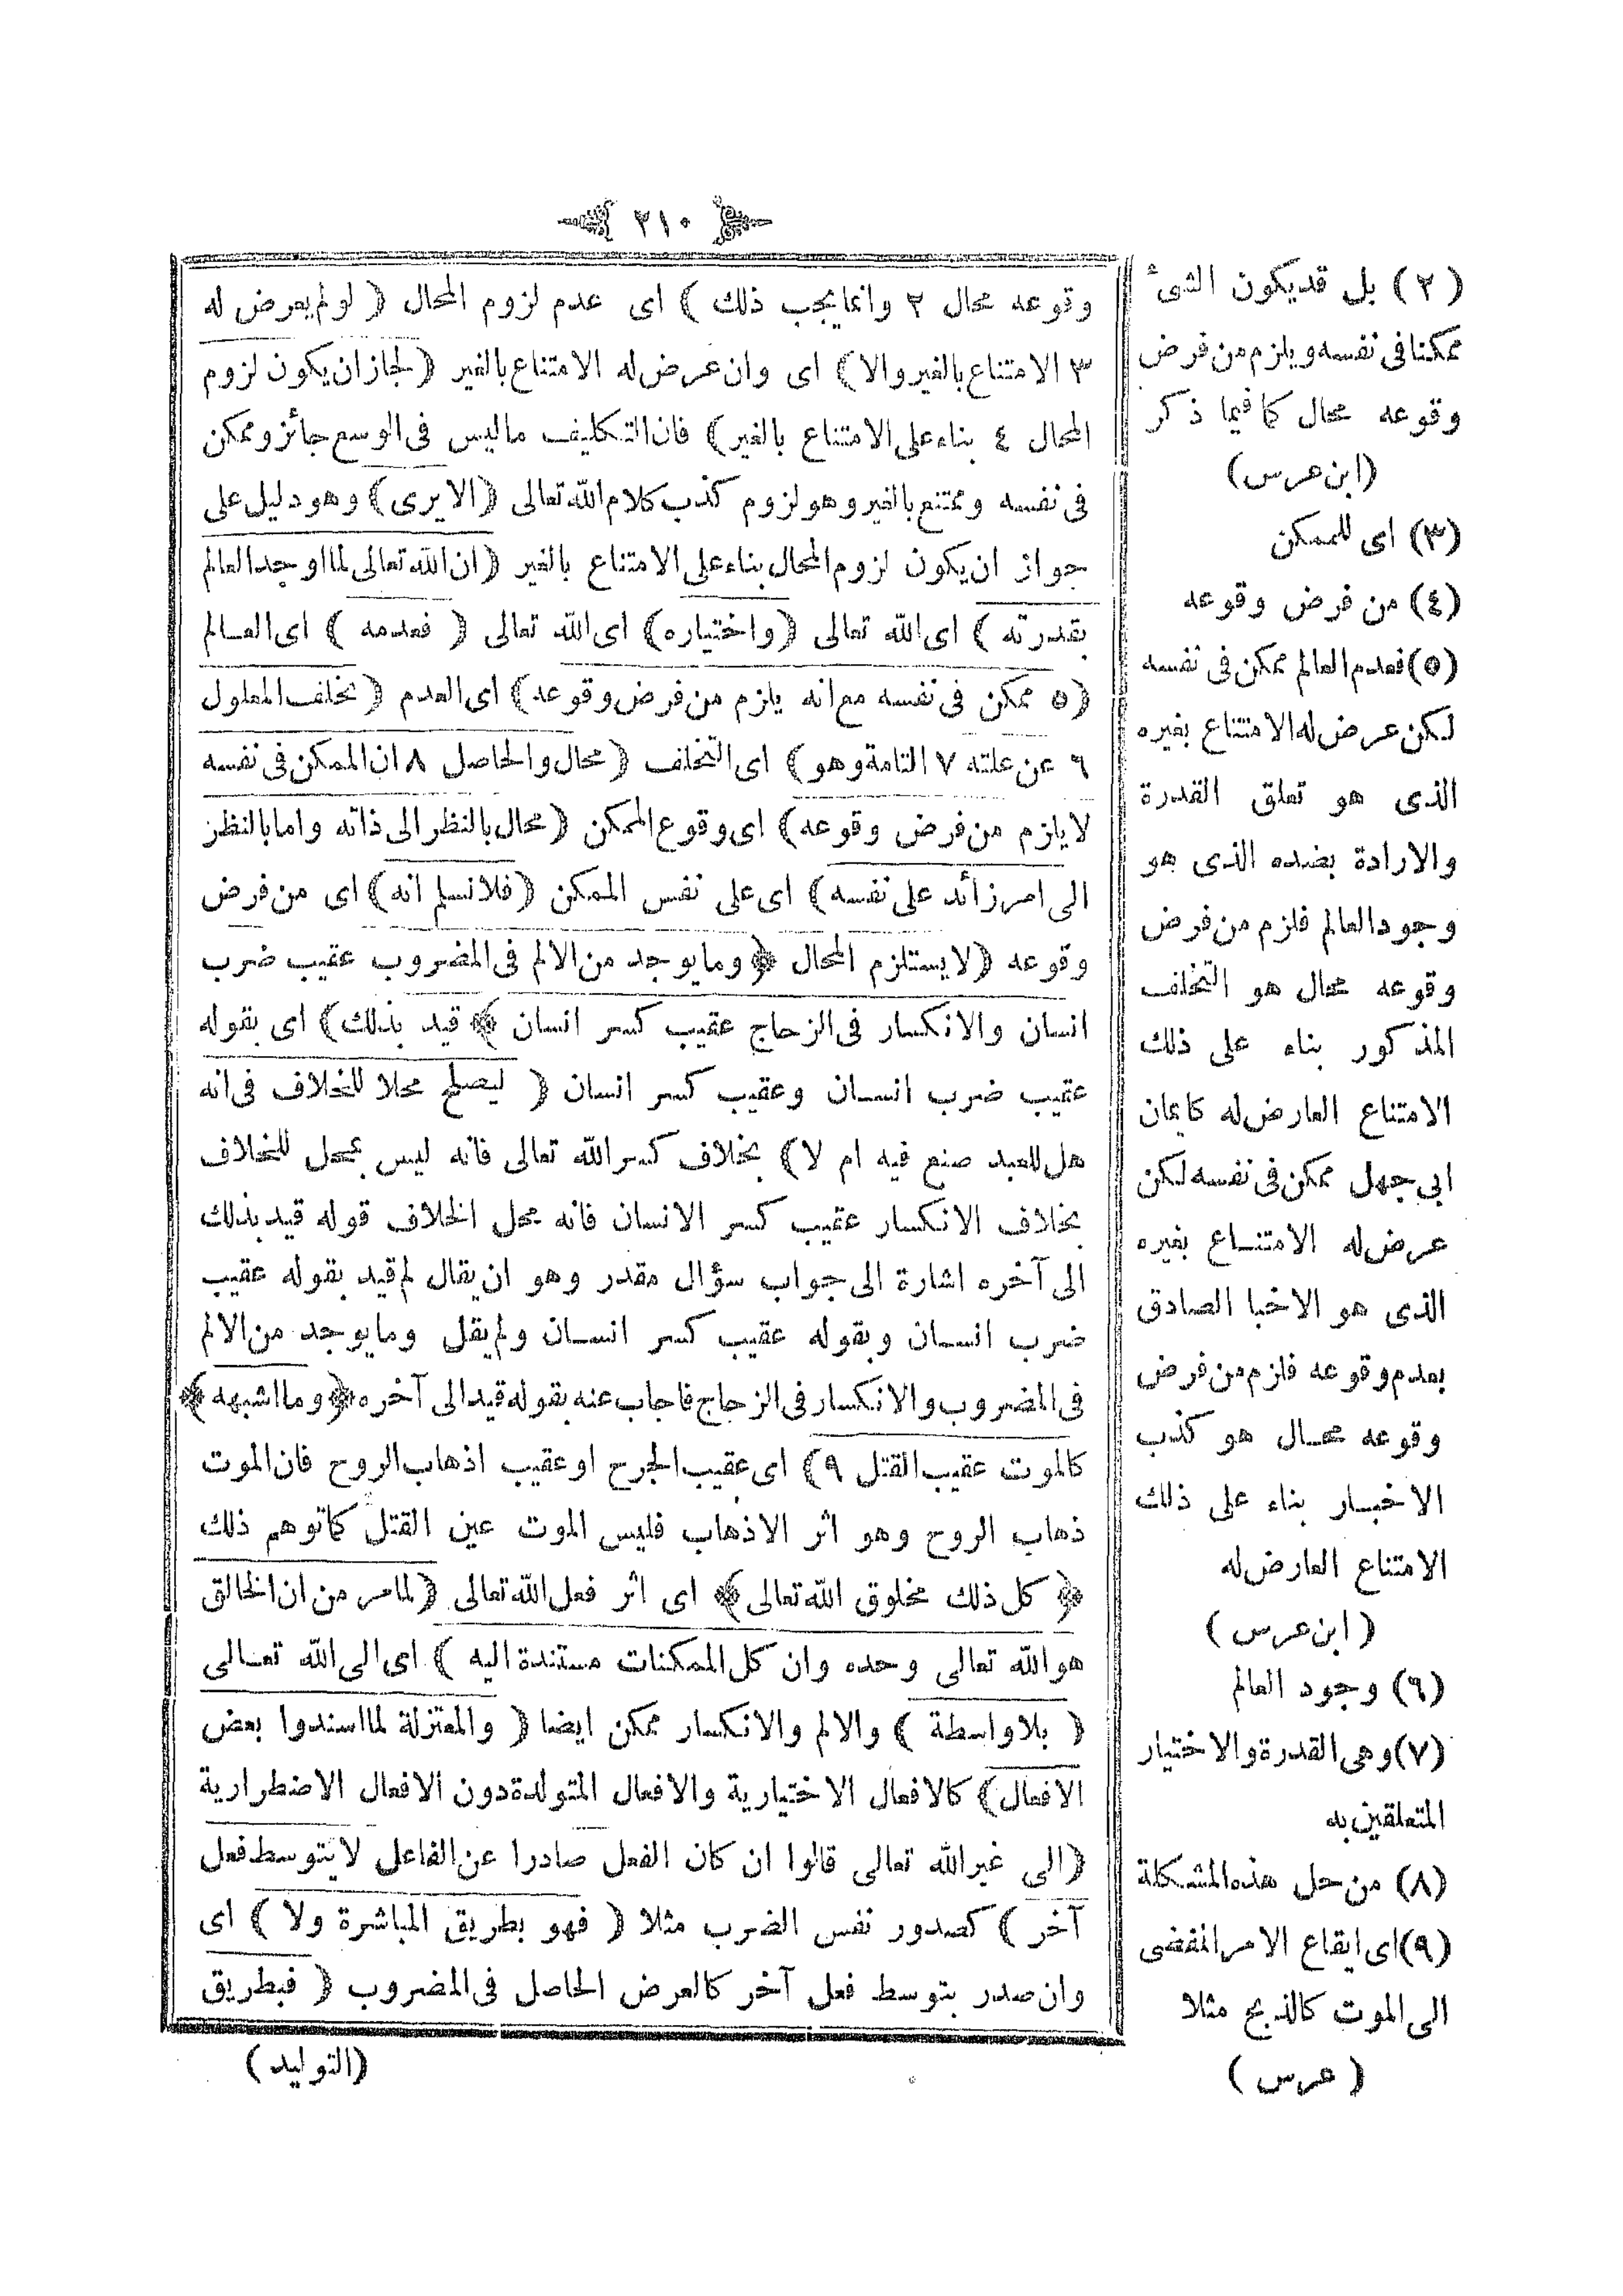 ٢١٠
وقوعه محال ٢ وانما يجب ذلك ) اى عدم لزوم المحال ( لو لم يعرض له
٣ الامتناع بالغير والا ) اى وان عرض له الامتناع بالغير ( لجاز ان يكون لزوم
المحال ٤ بناء على الامتناع بالغير ) فان التكليف ما ليس فى الوسع جائز وممكن
فى نفسه وممتنع بالغير وهو لزوم كذب كلام الله تعالى ( الا يرى ) وهو دليل على
جواز ان يكون لزوم المحال بناء على الامتناع بالغير ( ان الله تعالى لما اوجد العالم
بقدرته ) اى الله تعالى ( واختياره ) اى الله تعالى ( فعدمه ) اى العالم
( ٥ ممكن فى نفسه مع انه يلزم من فرض وقوعه ) اى العدم ( تخلف المعلول
٦ عن علته ٧ التامة وهو ) اى التخلف ( محال والحاصل ٨ ان الممكن فى نفسه
لا يلزم من فرض وقوعه ) اى وقوع الممكن ( محال بالنظر الى ذاته واما بالنظر
الى امر زائد على نفسه ) اى على نفس الممكن ( فلا نسلم انه ) اى من فرض
وقوعه ( لا يستلزم المحال ﴿ وما يوجد من الالم فى المضروب عقيب ضرب
انسان والانكسار فى الزجاج عقيب كسر انسان ﴾ قيد بذلك ) اى بقوله
عقيب ضرب انسان وعقيب كسر انسان ( ليصلح محلا للخلاف فى انه
هل للعبد صنع فيه ام لا ) بخلاف كسر الله تعالى فانه ليس بمحل للخلاف
بخلاف الانكسار عقيب كسر الانسان فانه محل الخلاف قوله قيد بذلك
الى آخره اشارة الى جواب سؤال مقدر وهو ان يقال لم قيد بقوله عقيب
ضرب انسان وبقوله عقيب كسر انسان ولم يقل وما يوجد من الالم
فى المضروب والانكسار فى الزجاج فاجاب عنه بقوله قيد الى آخره ﴿ وما اشبهه ﴾
كالموت عقيب القتل ٩ ) اى عقيب الجرح او عقيب اذهاب الروح فان الموت
ذهاب الروح وهو اثر الاذهاب فليس الموت عين القتل كما توهم ذلك
﴿ كل ذلك مخلوق الله تعالى ﴾ اى اثر فعل الله تعالى ( لما مر من ان الخالق
هو الله تعالى وحده وان كل الممكنات مستندة اليه ) اى الى الله تعالى
( بلا واسطة ) والالم والانكسار ممكن ايضا ( والمعتزلة لما اسندوا بعض
الافعال ) كالافعال الاختيارية والافعال المتولدة دون الافعال الاضطرارية
( الى غير الله تعالى قالوا ان كان الفعل صادرا عن الفاعل لا بتوسط فعل
آخر ) كصدور نفس الضرب مثلا ( فهو بطريق المباشرة ولا ) اى
وان صدر بتوسط فعل آخر كالعرض الحاصل فى المضروب ( فبطريق
(التوليد)
(٢) بل قد يكون الشئ
ممكنا فى نفسه ويلزم من فرض
وقوعه محال كما فيما ذكر
(ابن عرس)
(٣) اى للممكن
(٤) من فرض وقوعه
(٥) فعدم العالم ممكن فى نفسه
لكن عرض له الامتناع بغيره
الذى هو تعلق القدرة
والارادة بضده الذى هو
وجود العالم فلزم من فرض
وقوعه محال هو التخلف
المذكور بناء على ذلك
الامتناع العارض له كايمان
ابى جهل ممكن فى نفسه لكن
عرض له الامتناع بغيره
الذى هو الاخبا الصادق
بعدم وقوعه فلزم من فرض
وقوعه محال هو كذب
الاخبار بناء على ذلك
الامتناع العارض له
( ابن عرس )
(٦) وجود العالم
(٧) وهى القدرة والاختيار
المتعلقين به
(٨) من حل هذه المشكلة
(٩) اى ايقاع الامر المفضى
الى الموت كالذبح مثلا
( عرس )